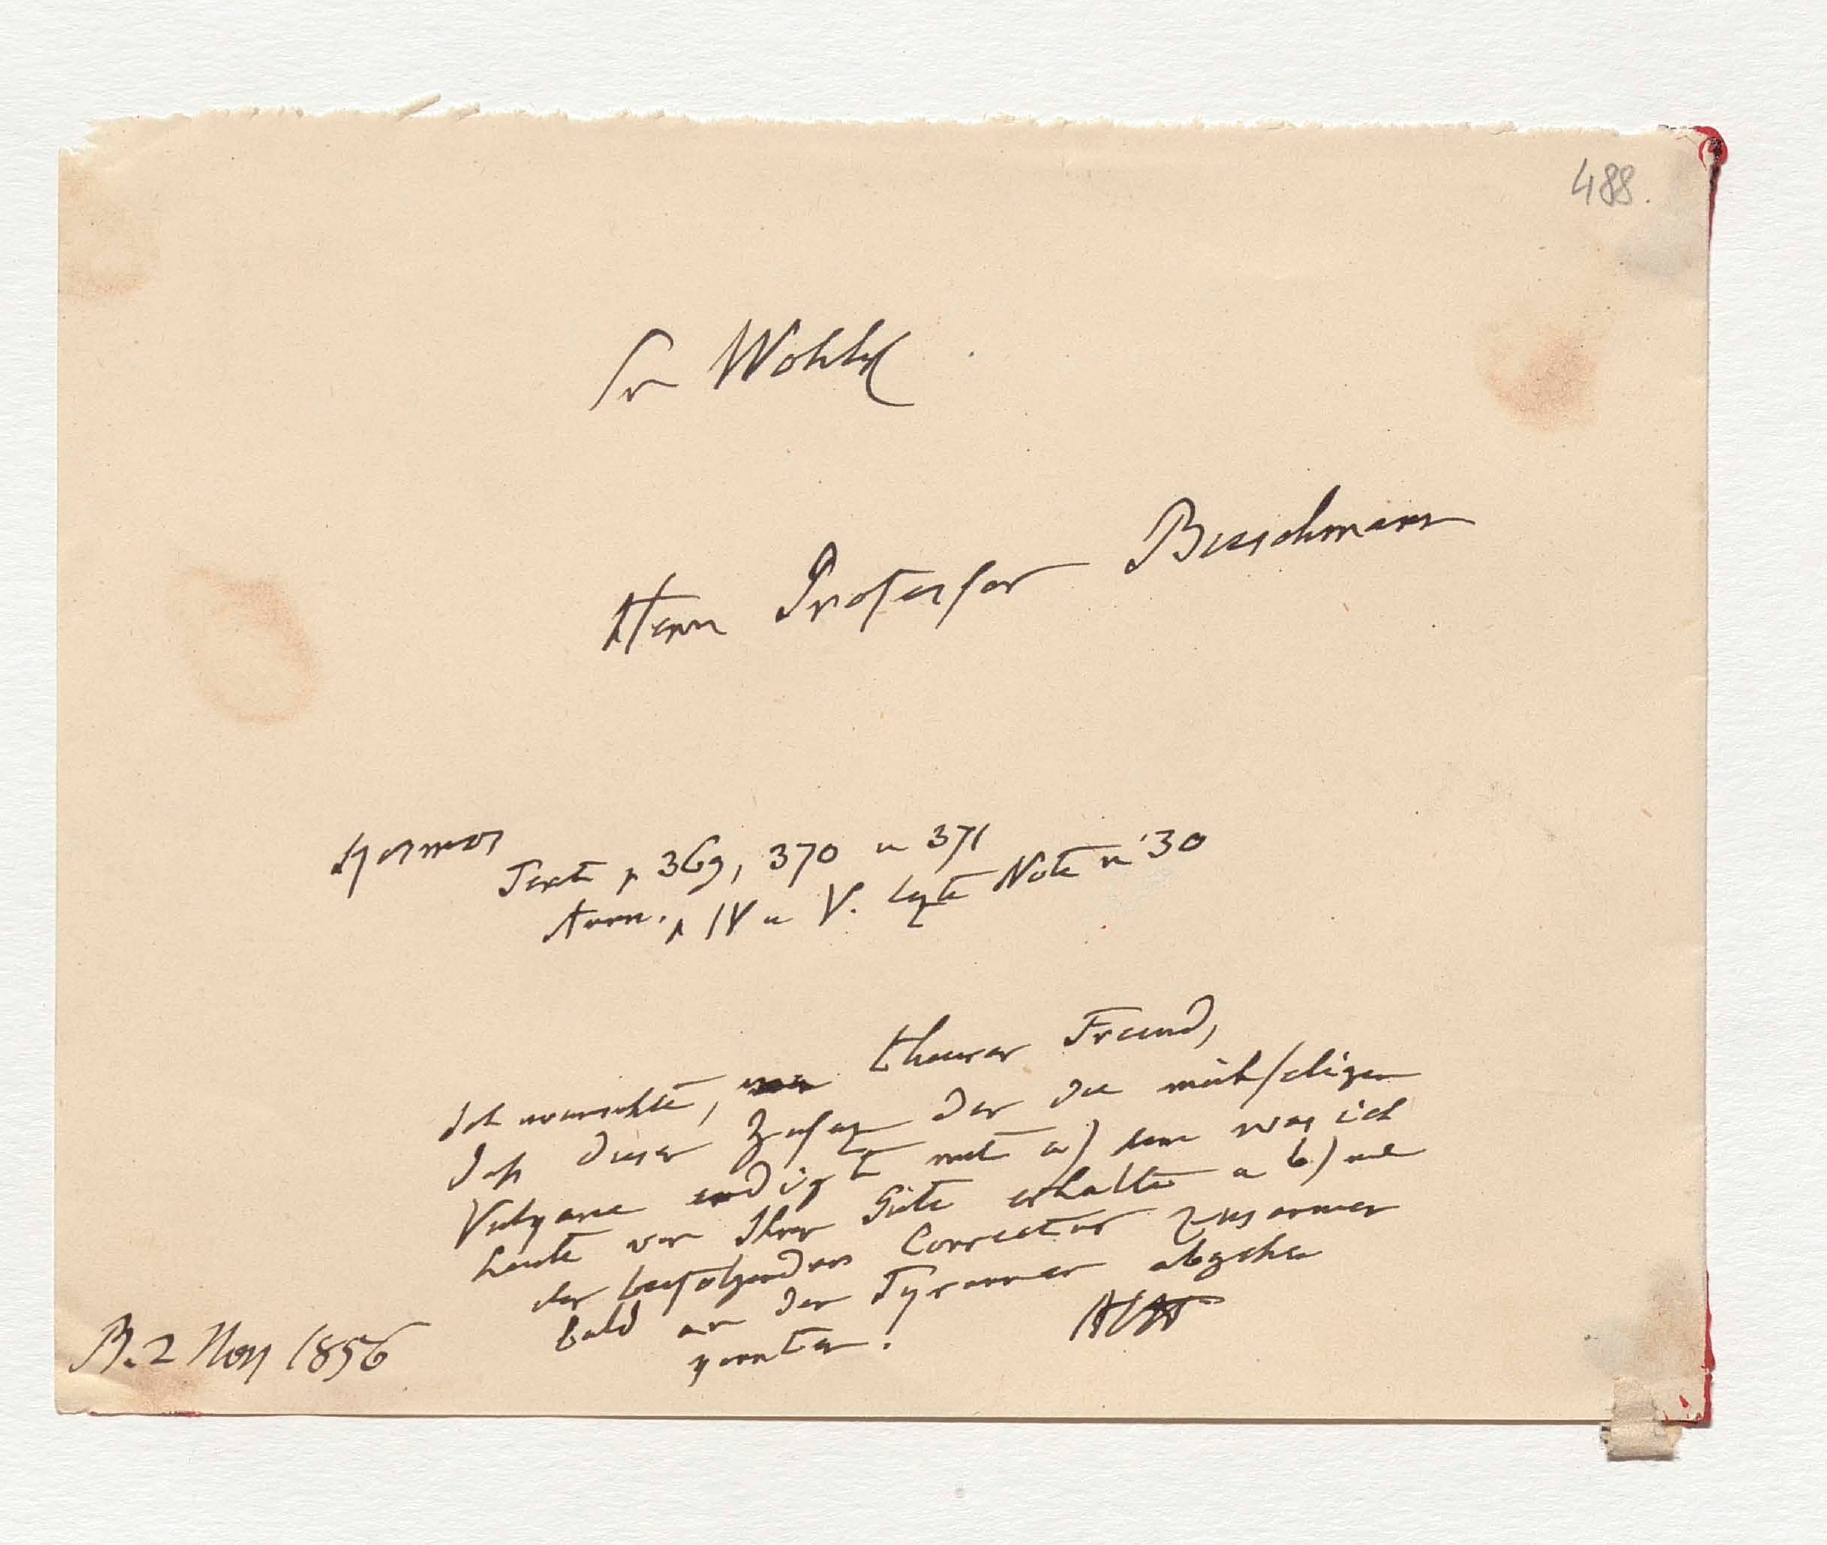 488.
Sr Wohlg
Herrn Professor Buschmann
Kosmos
Text p 369, 370 u 371
Anm. p IV u V. lezte Note n 30
Ich wünschte, theurer Freund,
daß dieser Zusaz der die mühseligen
Vulkane endigt mit a) dem was ich
heute von Ihrer Güte erhalte u b) mit
der Correctur zusammen
bald an den Tyrannen abgehen
könnten!
AHt
B. 2 Nov 1856